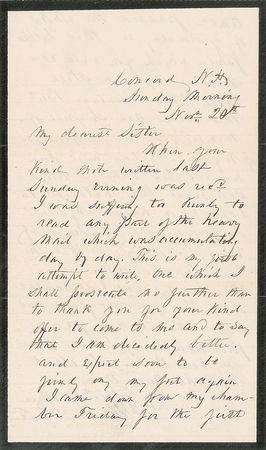 Concord N.H.
Sunday Morning
Nov. 20th
My dearest Sister
When your
kind note written last
Sunday Evening was recd
I was suffering too keenly to
read any part of the heavy
mail which was accumulating
day by day. This is my first
attempt to write, one which I
shall prosecute no further than
to thank you for your kind
offer to come to me and to say
that I am decidedly better
and expect soon to be
firmly on my feet again
I came down from my cham-
ber Friday for the first